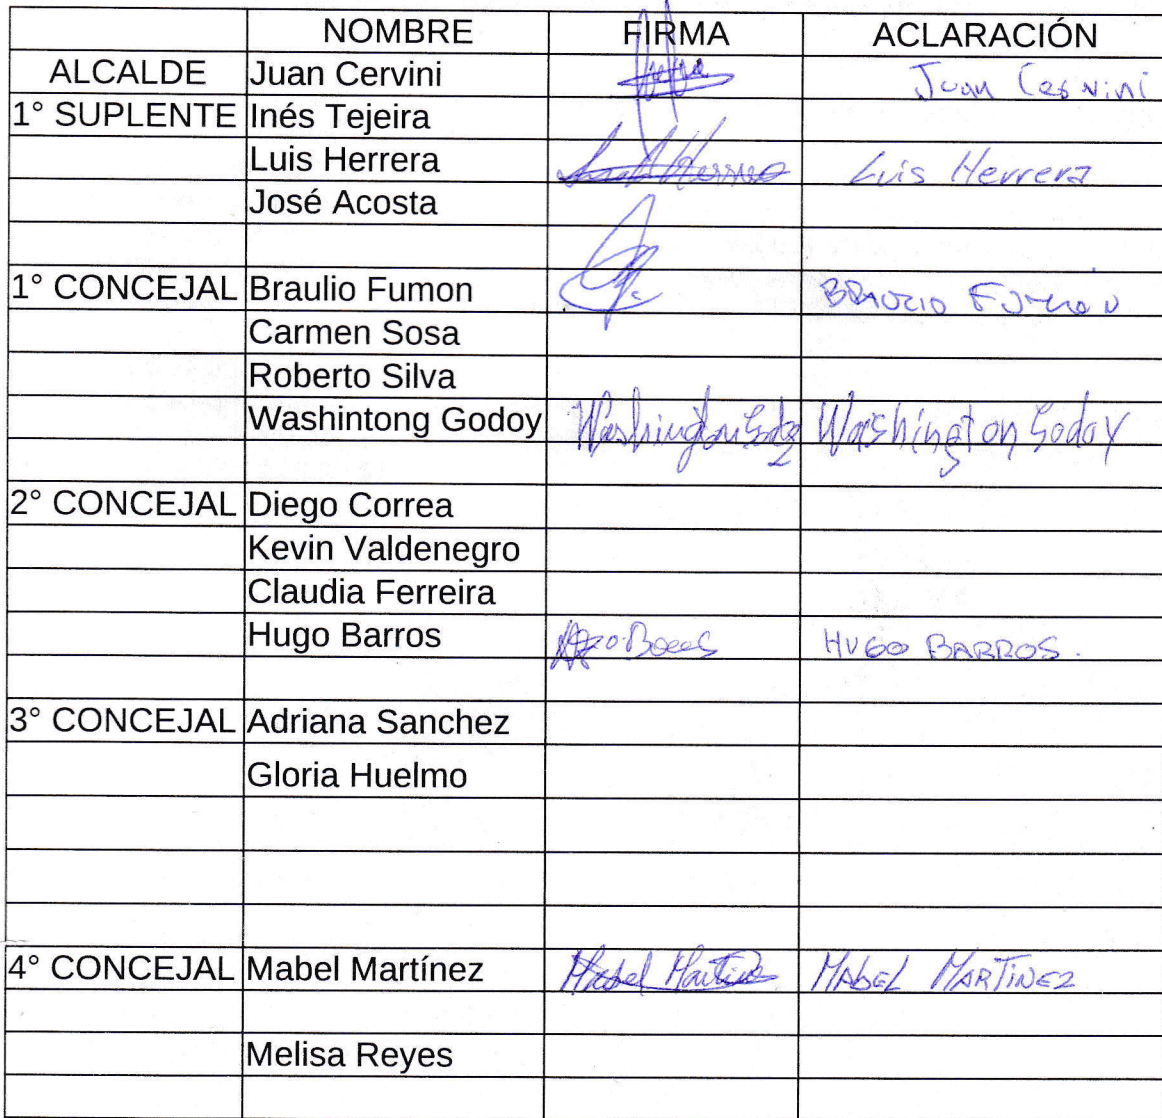 NOMBRE FIRMA ACLARACIÓN
ALCALDE Juan Cervini Juan Cervini
1° SUPLENTE Inés Tejeira
Luis Herrera Luis Herrera Luis Herrera
José Acosta
1° CONCEJAL Braulio Fumon BRAULIO FUMON
Carmen Sosa
Roberto Silva
Washintong Godoy Washington Godoy Washington Godoy
2° CONCEJAL Diego Correa
Kevin Valdenegro
Claudia Ferreira
Hugo Barros Hugo Barros HUGO BARROS.
3° CONCEJAL Adriana Sanchez
Gloria Huelmo
4° CONCEJAL Mabel Martínez Mabel Martinez MABEL MARTINEZ
Melisa Reyes